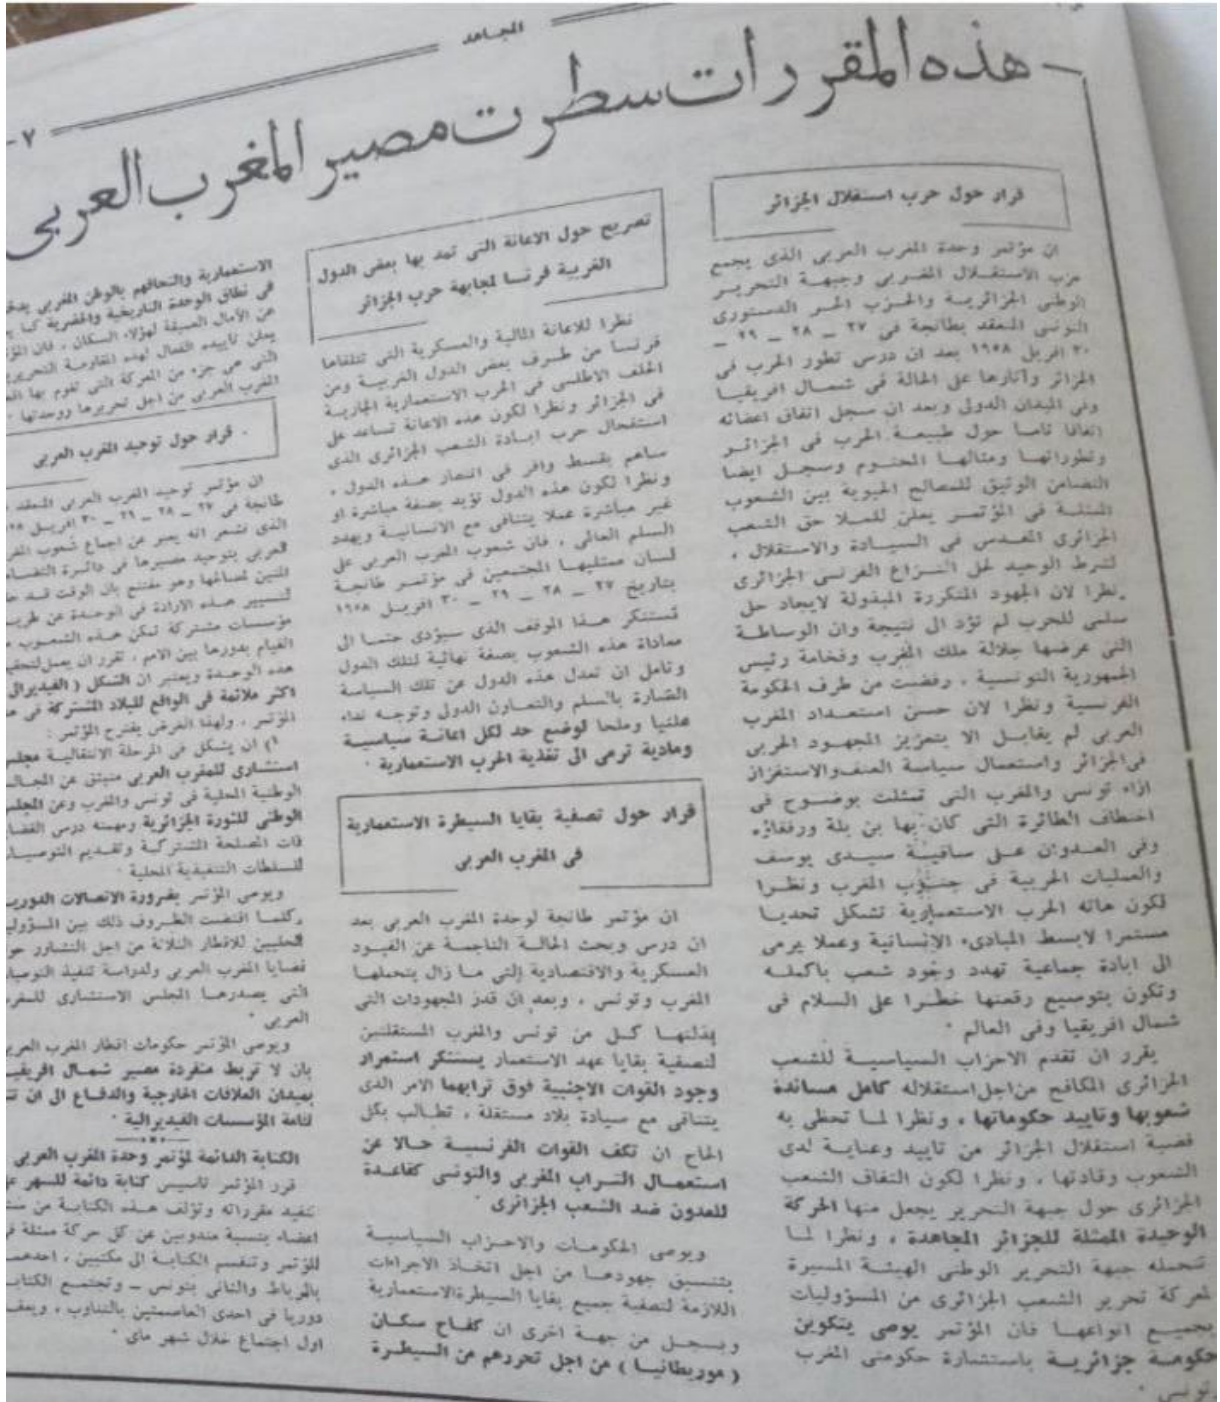 المجاهد
٧ -
هذه المقررات سطرت مصير المغرب العربى
قرار حول حرب استقلال الجزائر
ان مؤتمر وحدة المغرب العربى الذى يجمع
حزب الاستقلال المغربى وجبهة التحرير
الوطنى الجزائرية والحزب الحر الدستورى
التونسى المنعقد بطانجة فى ٢٧ ـ ٢٨ ـ ٢٩ ـ
٣٠ افريل ١٩٥٨ بعد ان درس تطور الحرب فى
الجزائر وآثارها على الحالة فى شمال افريقيا
وفى الميدان الدولى وبعد ان سجل اتفاق اعضائه
اتفاقا تاما حول طبيعة الحرب فى الجزائر
وتطوراتها ومئالها المحتوم وسجل ايضا
التضامن الوثيق للمصالح الحيوية بين الشعوب
الممثلة فى المؤتمر يعلن للملا حق الشعب
الجزائرى المقدس فى السيادة والاستقلال ،
لشرط الوحيد لحل النزاع الفرنسى الجزائرى
ونظرا لان الجهود المتكررة المبذولة لايجاد حل
سلمى للحرب لم تؤد الى نتيجة وان الوساطة
التى عرضها جلالة ملك المغرب وفخامة رئيس
الجمهورية التونسية ، رفضت من طرف الحكومة
الفرنسية ونظرا لان حسن استعداد المغرب
العربى لم يقابل الا بتعزيز المجهود الحربى
فىالجزائر واستعمال سياسة العنفوالاستفزاز
ازاء تونس والمغرب التى تمثلت بوضوح فى
اختطاف الطائرة التى كان بها بن بلة ورفقاؤه
وفى العدوان على ساقية سيدى يوسف
والعمليات الحربية فى جنوب المغرب ونظرا
لكون هاته الحرب الاستعمارية تشكل تحديا
مستمرا لابسط المبادىء الانسانية وعملا يرمى
الى ابادة جماعية تهدد وجود شعب باكمله
وتكون بتوسيع رقعتها خطرا على السلام فى
شمال افريقيا وفى العالم ·
يقرر ان تقدم الاحزاب السياسية للشعب
الجزائرى المكافح مناجلاستقلاله كامل مساندة
شعوبها وتاييد حكوماتها ، ونظرا لما تحظى به
قضية استقلال الجزائر من تاييد وعناية لدى
الشعوب وقادتها ، ونظرا لكون التفاف الشعب
الجزائرى حول جبهة التحرير يجعل منها الحركة
الوحيدة الممثلة للجزائر المجاهدة ، ونظرا لما
تتحمله جبهة التحرير الوطنى الهيئة المسيرة
لمعركة تحرير الشعب الجزائرى من المسؤوليات
بجميع انواعها فان المؤتمر يوصى بتكوين
حكومة جزائرية باستشارة حكومتى المغرب
وتونس ·
تصريح حول الاعانة التى تمد بها بعض الدول
الغربية فرنسا لمجابهة حرب الجزائر
نظرا للاعانة المالية والعسكرية التى تتلقاها
فرنسا من طرف بعض الدول الغربية ومن
الحلف الاطلسى فى الحرب الاستعمارية الجارية
فى الجزائر ونظرا لكون هذه الاعانة تساعد على
استفحال حرب ابادة الشعب الجزائرى الذى
ساهم بقسط وافر فى انتصار هذه الدول ،
ونظرا لكون هذه الدول تؤيد بصفة مباشرة او
غير مباشرة عملا يتنافى مع الانسانية ويهدد
السلم العالمى ، فان شعوب المغرب العربى على
لسان ممثليها المجتمعين فى مؤتمر طانجة
بتاريخ ٢٧ ـ ٢٨ ـ ٢٩ ـ ٣٠ افريل ١٩٥٨
تستنكر هذا الموقف الذى سيؤدى حتما الى
معاداة هذه الشعوب بصفة نهائية لتلك الدول
وتامل ان تعدل هذه الدول عن تلك السياسة
الضارة بالسلم والتعاون الدولى وتوجه نداء
علنيا وملحا لوضع حد لكل اعانة سياسية
ومادية ترمى الى تغذية الحرب الاستعمارية ·
قرار حول تصفية بقايا السيطرة الاستعمارية
فى المغرب العربى
ان مؤتمر طانجة لوحدة المغرب العربى بعد
ان درس وبحث الحالة الناجمة عن القيود
العسكرية والاقتصادية التى ما زال يتحملها
المغرب وتونس ، وبعد ان قدر المجهودات التى
بذلتها كل من تونس والمغرب المستقلتين
لتصفية بقايا عهد الاستعمار يستنكر استمرار
وجود القوات الاجنبية فوق ترابهما الامر الذى
يتنافى مع سيادة بلاد مستقلة ، تطالب بكل
الحاح ان تكف القوات الفرنسية حالا عن
استعمال التراب المغربى والتونسى كقاعدة
للعدون ضد الشعب الجزائرى ·
ويوصى الحكومات والاحزاب السياسية
بتنسيق جهودها من اجل اتخاذ الاجراءات
اللازمة لتصفية جميع بقايا السيطرةالاستعمارية
ويسجل من جهة اخرى ان كفاح سكان
( موريطانيا ) من اجل تحررهم من السيطرة
الاستعمارية والتحاقهم بالوطن المغربى
فى نطاق الوحدة التاريخية والحضرية كما
عن الآمال العميقة لهؤلاء السكان ، فان
يعلن تاييده الفعال لهذه المقاومة
التى هى جزء من المعركة التى تقوم بها
المغرب العربى من اجل تحريرها ووحدتها ·
قرار حول توحيد المغرب العربى
ان مؤتمر توحيد المغرب العربى المنعقد
طانجة فى ٢٧ ـ ٢٨ ـ ٢٩ ـ ٣٠ افريل
الذى تشعر انه يعبر عن اجماع شعوب
العربى بتوحيد مصيرها فى دائرة
المتين لمصالحها وهو مقتنع بان الوقت قد
لتسيير هذه الارادة فى الوحدة عن
مؤسسات مشتركة تمكن هذه الشعوب
القيام بدورها بين الامم ، تقرر ان يعمل
هذه الوحدة ويعتبر ان الشكل ( الفيديرالى
اكثر ملائمة فى الواقع للبلاد المشتركة فى
المؤتمر ، ولهذا الغرض يقترح المؤتمر :
١) ان يشكل فى المرحلة الانتقالية مجلس
استشارى للمغرب العربى منبثق عن
الوطنية المحلية فى تونس والمغرب وعن المجلس
الوطنى للثورة الجزائرية ومهمته درس
ذات المصلحة المشتركة وتقديم
للسلطات التنفيذية المحلية ·
ويوصى المؤتمر بضرورة الاتصالات
وكلما اقتضت الظروف ذلك بين
المحليين للاقطار الثلاثة من اجل التشاور
قضايا المغرب العربى ولدراسة تنفيذ
التى يصدرها المجلس الاستشارى
العربى ·
ويوصى المؤتمر حكومات اقطار المغرب
بان لا تربط منفردة مصير شمال
بميدان العلاقات الخارجية والدفاع الى ان
اقامة المؤسسات الفيديرالية ·
الكتابة الدائمة لمؤتمر وحدة المغرب العربى
قرر المؤتمر تاسيس كتابة دائمة للسهر
تنفيذ مقرراته وتؤلف هذه الكتابة من
اعضاء بنسبة مندوبين عن كل حركة ممثلة
للمؤتمر وتنقسم الكتابة الى مكتبين ،
بالرباط والثانى بتونس ـ وتجتمع
دوريا فى احدى العاصمتين بالتناوب ،
اول اجتماع خلال شهر ماى ·